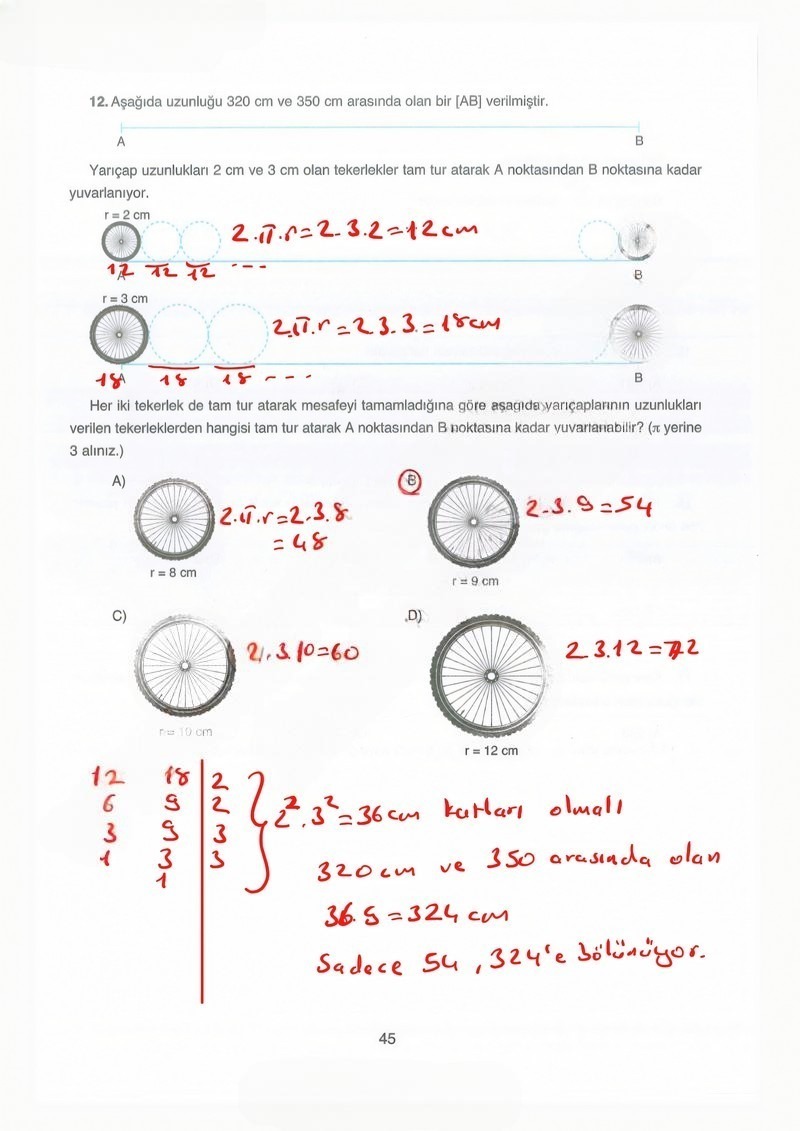 12. Aşağıda uzunluğu 320 cm ve 350 cm arasında olan bir [AB] verilmiştir.
A B
Yarıçap uzunlukları 2 cm ve 3 cm olan tekerlekler tam tur atarak A noktasından B noktasına kadar
yuvarlanıyor.
r = 2 cm
2.π.r=2.3.2=12cm
12 12 12 ...
A B
r = 3 cm
2.π.r=2 3.3.=18cm
18 18 18 ...
A B
Her iki tekerlek de tam tur atarak mesafeyi tamamladığına göre aşağıda yarıçaplarının uzunlukları
verilen tekerleklerden hangisi tam tur atarak A noktasından B noktasına kadar yuvarlanabilir? (π yerine
3 alınız.)
A) 2.π.r=2.3.8
=48
r = 8 cm
B) 2.3.9=54
r = 9 cm
C) 2.3.10=60
r = 10 cm
D) 2 3.12=72
r = 12 cm
12 18 2
6 9 2
3 9 3
1 3 3
1
2².3²=36cm katları olmalı
320cm ve 350 arasında olan
36.9=324 cm
Sadece 54, 324'e bölünüyor.
45